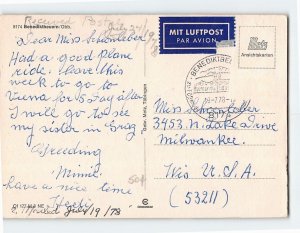 Received
8174 Benediktbeuern/Obb.
Dear Miss Schoenleber
Had a good plane
ride. Leave this
week to go to
Vienna for 15 days after
I will go to see
my sister in Graz
Greeding
Minnie
have a nice time
MIT LUFTPOST
PAR AVION
Metz
Ansichtskarten
BENEDIKTBEUERN
8174
Miss Schoenleber
3453 N. Lake Drive
Milwaukee
Wis U.S.A
(53211)
Mailed July 19/78